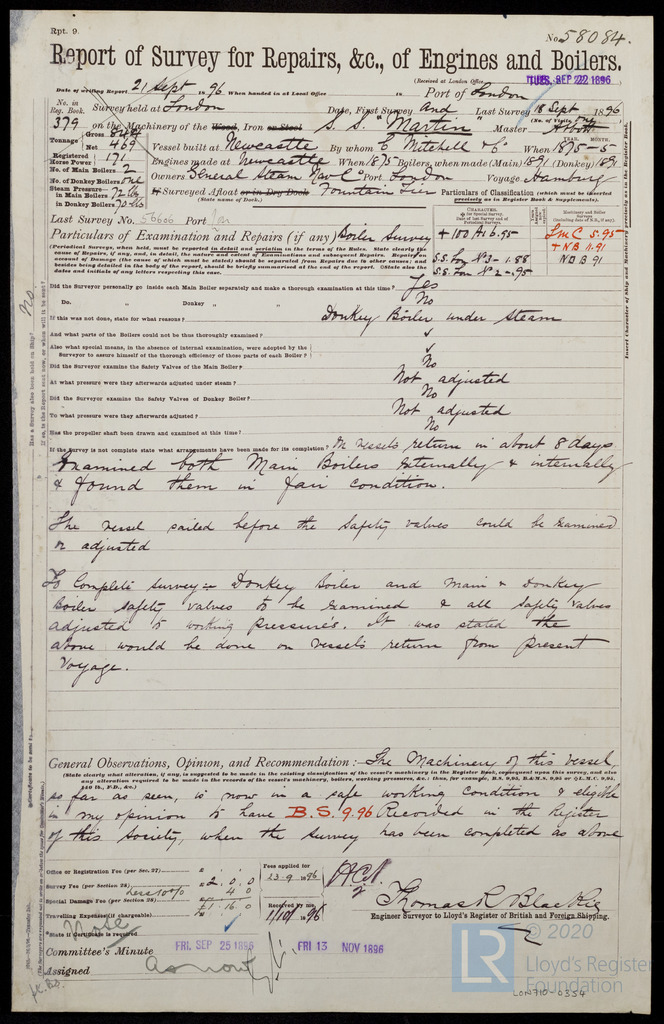 Rpt. 9.
No. 58084.
Report of Survey for Repairs, &c., of Engines and Boilers.
(Received at London Office TUES. SEP 22 1896
Date of writing Report 21 Sept 1896 When handed in at Local Office 18 Port of London
No. in Reg. Book. Survey held at London Date, First Survey and Last Survey 18 Sept 1896
(No. of Visits one)
379 on the Machinery of the Wood, Iron or Steel S. S. "Martin" Master
Tonnage Gross Net 469 Vessel built at Newcastle By whom C Mitchell & Co When 1875-5
YEAR. MONTH.
Registered Horse Power 171 Engines made at Newcastle When 1875 Boilers, when made (Main) 1891 (Donkey) 1891
No. of Main Boilers 2
No. of Donkey Boilers one Owners General Steam Nav Co Port London Voyage Hamburg
Steam Pressure in Main Boilers 72 lbs
in Donkey Boilers 70 lbs If Surveyed Afloat or in Dry Dock Fountain Tier
(State name of Dock.)
Particulars of Classification (which must be inserted precisely as in Register Book & Supplements).
Last Survey No. 56606 Port Lon
Particulars of Examination and Repairs (if any) Boiler Survey
CHARACTER.
+ 100 A1 6.95
S.S. Lon No 3 - 1.88
S.S. Lon No 2 - .95
Machinery and Boiler Surveys
LMC 5.95
+ NB 11.91
NDB 91
(Periodical Surveys, when held, must be reported in detail and seriatim in the terms of the Rules. State clearly the cause of Repairs, if any, and, in detail, the nature and extent of Examinations and subsequent Repairs. Repairs on account of Damage (the cause of which must be stated) should be separated from Repairs due to other causes; and besides being detailed in the body of the report, should be briefly summarised at the end of the report. State also the dates and initials of any letters respecting this case.
Did the Surveyor personally go inside each Main Boiler separately and make a thorough examination at this time? Yes
Do. " Donkey " " No
If this was not done, state for what reasons? Donkey Boiler under steam
And what parts of the Boilers could not be thus thoroughly examined? ✓
Also what special means, in the absence of internal examination, were adopted by the Surveyor to assure himself of the thorough efficiency of those parts of each Boiler? ✓
Did the Surveyor examine the Safety Valves of the Main Boiler? No
At what pressure were they afterwards adjusted under steam? Not adjusted
Did the Surveyor examine the Safety Valves of Donkey Boiler? No
To what pressure were they afterwards adjusted? Not adjusted
Has the propeller shaft been drawn and examined at this time? No
If the Survey is not complete state what arrangements have been made for its completion? On vessels return in about 8 days
Examined both Main Boilers externally & internally
& found them in fair condition.
The vessel sailed before the safety valves could be examined
or adjusted
To Complete survey :- Donkey Boiler and main & Donkey
Boiler safety valves to be examined & all safety valves
adjusted to working pressures. It was stated the
above would be done on vessels return from present
voyage.
General Observations, Opinion, and Recommendation:— The Machinery of this vessel,
(State clearly what alteration, if any, is suggested to be made in the existing classification of the vessel's machinery in the Register Book, consequent upon this survey, and also any alteration required to be made in the records of the vessel's machinery, boilers, working pressures, &c.; thus, for example, B.S. 9.95, B.&M.S. 9.95 or L.M.C. 9.95, 140 lb., F.D., &c.)
so far as seen, is now in a safe working condition & eligible
in my opinion to have B.S. 9.96 Recorded in the Register
of this Society, when the survey has been completed as above
Office or Registration Fee (per Sec. 27)
Survey Fee (per Section 28) £ 2 . 0 . 0
Less 10% 4 . 0
Special Damage Fee (per Section 28) £ 1 . 16 . 0
Travelling Expenses (if chargeable)
Fees applied for 23-9 1896
Received by me, 1896
Thomas R Blackie
Engineer Surveyor to Lloyd's Register of British and Foreign Shipping.
State if Certificate is required
Note
Committee's Minute FRI. SEP 25 1896 FRI 13 NOV 1896
Assigned As now
Has a Survey also been held on Ship? No
If so, is the Report sent now, or when will it be sent?
Insert Character of Ship and Machinery precisely as in the Register Book.
© 2020
LR
Lloyd's Register
Foundation
LON710-0354